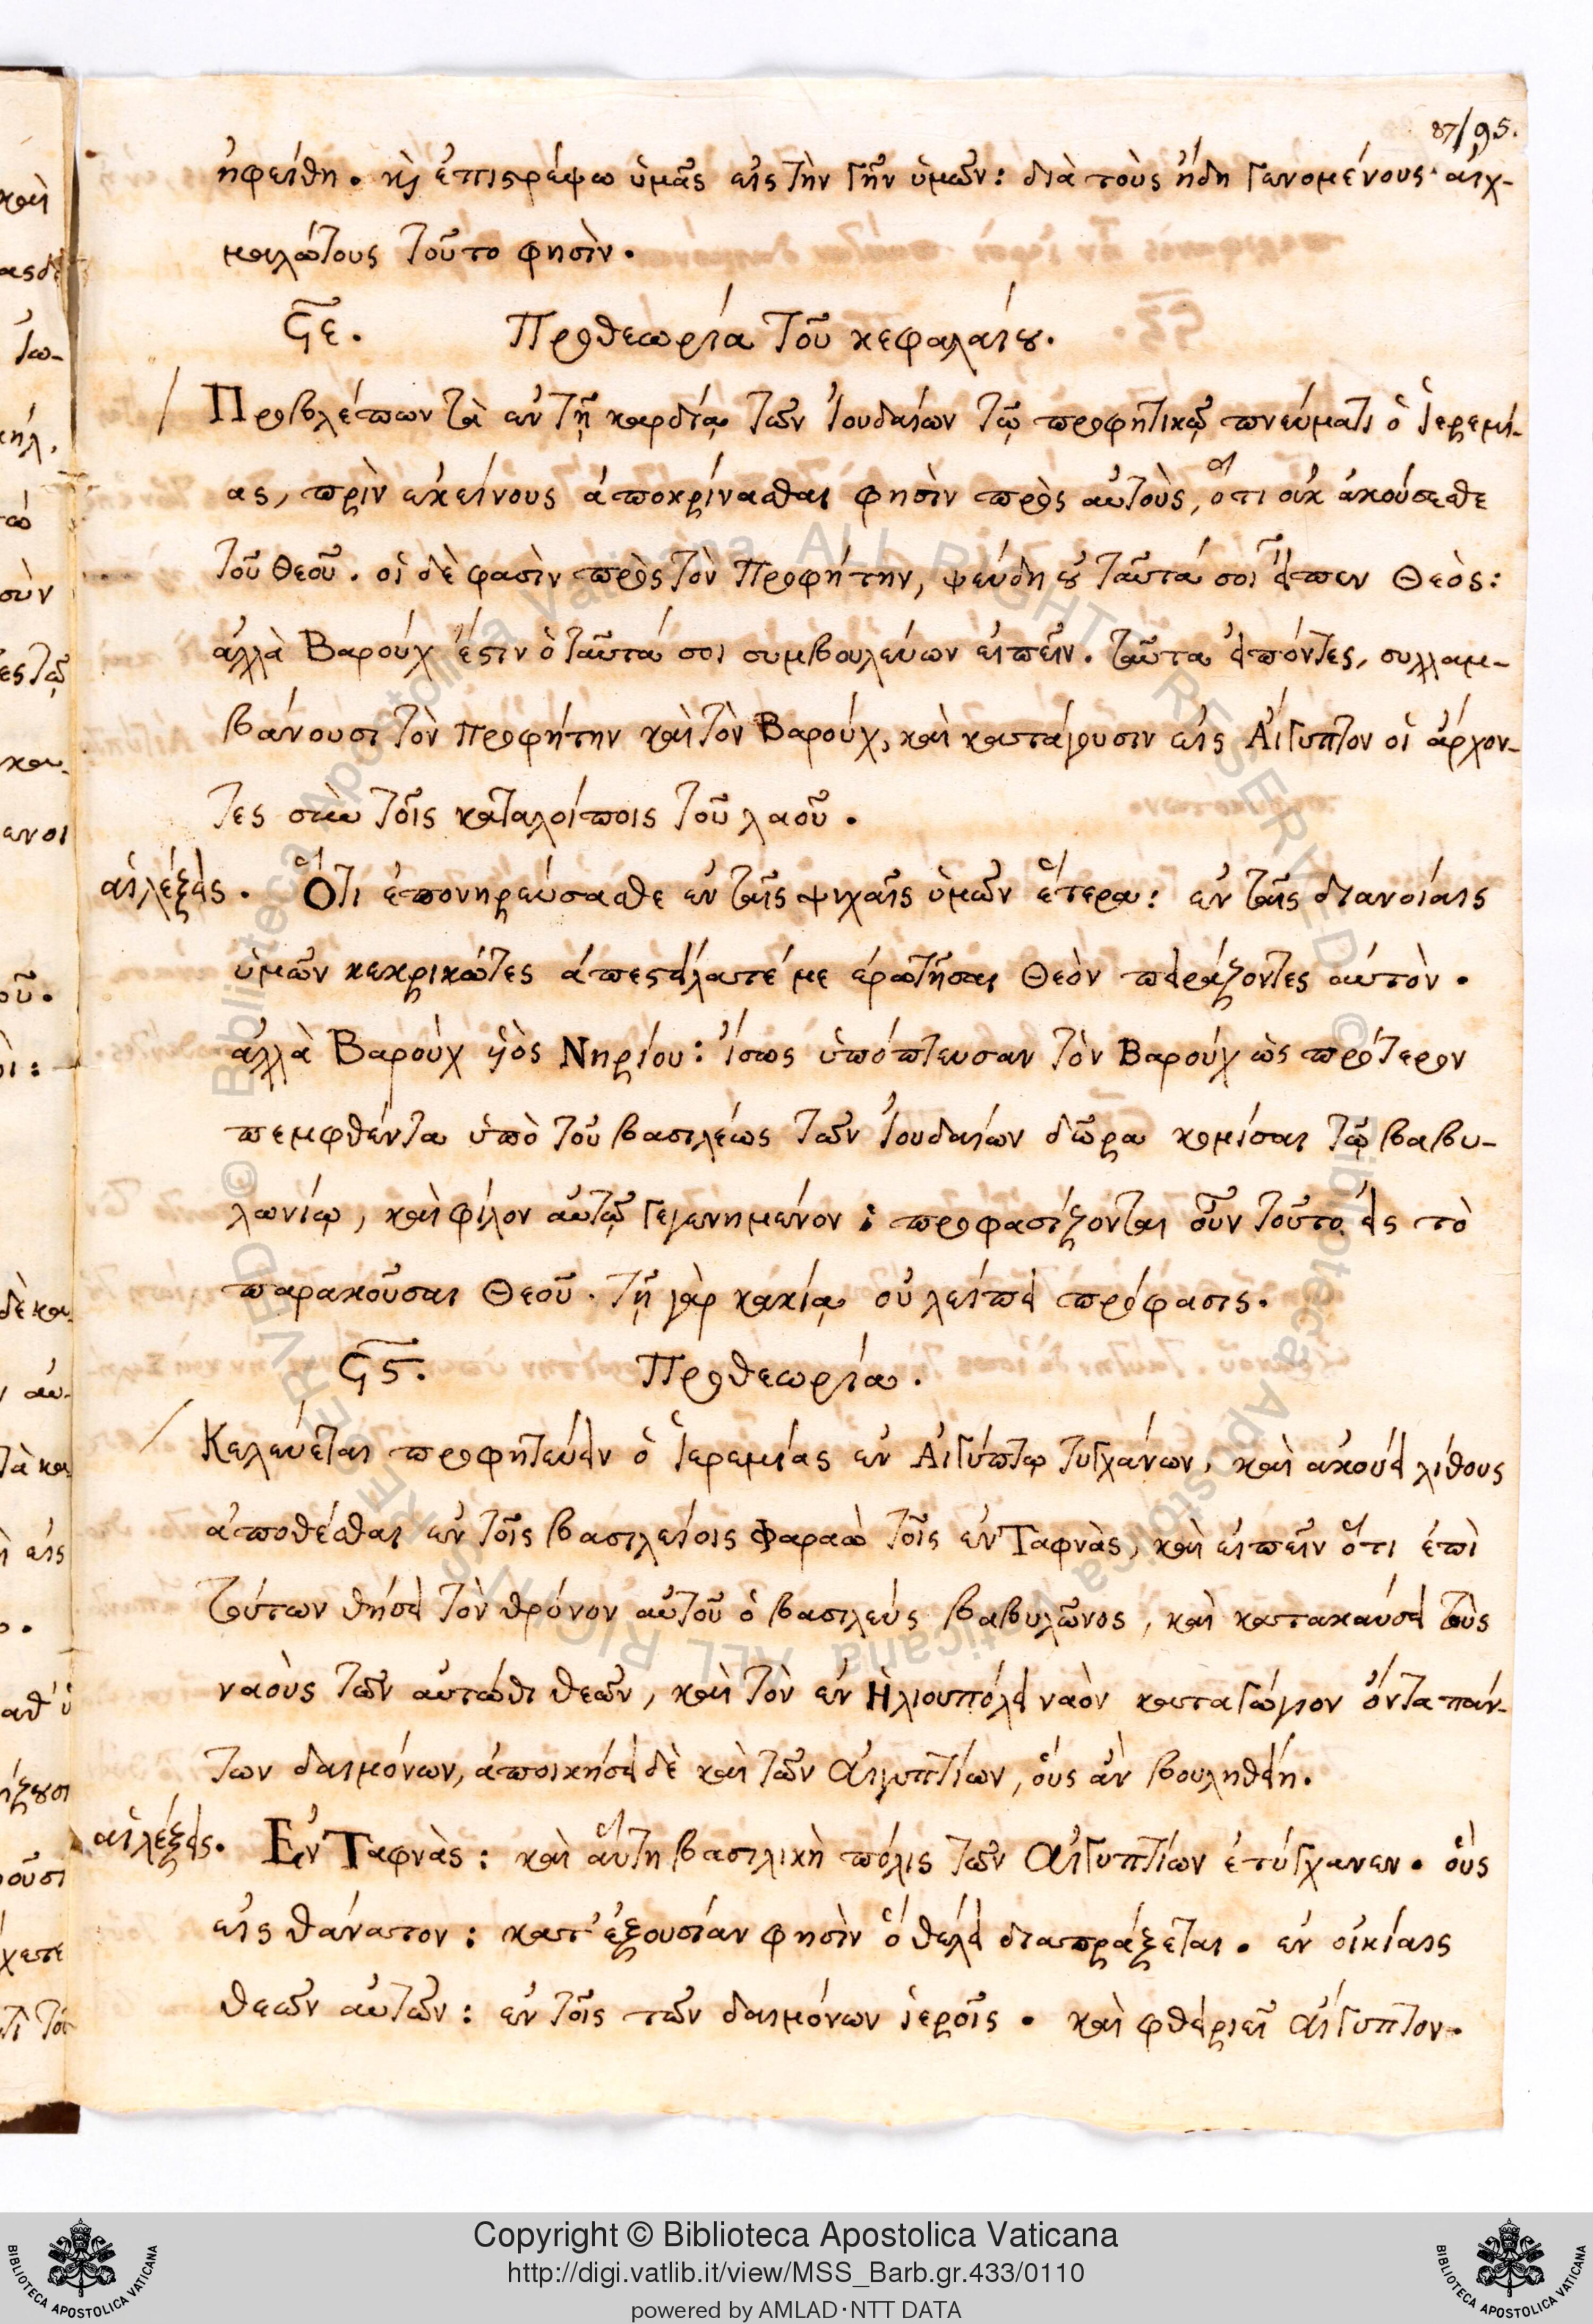 87/95.
ηφείθη. κὶ ἐπιστρέψω ὑμᾶς εἰς τὴν γῆν ὑμῶν: διὰ τοὺς ἤδη γενομένους αἰχ-
μαλώτους τοῦτο φησὶν.
Ϛε. Προθεωρία τοῦ κεφαλαίου.
Προβλέπων τὰ ἐν τῇ καρδίᾳ τῶν Ἰουδαίων τῷ προφητικῷ πνεύματι ὁ Ἱερεμί-
ας, πρὶν ἐκείνους ἀποκρίνασθαι φησὶν πρὸς αὐτοὺς, ὅτι οὐκ ἀκούσεσθε
τοῦ θεοῦ. οἱ δὲ φασὶν πρὸς τὸν Προφήτην, ψεύδη οὐ ταῦτά σοι εἶπεν Θεὸς:
ἀλλὰ Βαρούχ ἐστιν ὁ ταῦτά σοι συμβουλεύων εἰπεῖν. ταῦτα εἰπόντες, συλλαμ-
βάνουσι τὸν προφήτην καὶ τὸν Βαρούχ, καὶ κατάγουσιν εἰς Αἴγυπτον οἱ ἄρχον-
τες σὺν τοῖς καταλοίποις τοῦ λαοῦ.
αἱ λέξεις. Ὅτι ἐπονηρεύσασθε ἐν ταῖς ψυχαῖς ὑμῶν ἕτερα: ἐν ταῖς διανοίαις
ὑμῶν κεκρικότες ἀπεστείλατέ με ἐρωτῆσαι Θεὸν πειράζοντες αὐτὸν.
ἀλλὰ Βαροὺχ υἱὸς Νηρίου: ἴσως ὑπόπτευσαν τὸν Βαρούχ ὡς πρότερον
πεμφθέντα ὑπὸ τοῦ βασιλέως τῶν Ἰουδαίων δῶρα κομίσαι τῷ βαβυ-
λωνίῳ, καὶ φίλον αὐτῷ γεγενημένον: προφασίζονται οὖν τοῦτο εἰς τὸ
παρακοῦσαι Θεοῦ. τῇ γὰρ κακίᾳ οὐ λείπει πρόφασις.
Ϛϛ. Προθεωρία.
Κελεύεται προφητεύειν ὁ Ἱερεμίας ἐν Αἰγύπτῳ τυγχάνων, καὶ ἀκούει λίθους
ἀποθέσθαι ἐν τοῖς βασιλείοις Φαραὼ τοῖς ἐν Ταφνὰς, καὶ εἰπεῖν ὅτι ἐπὶ
τούτων θήσει τὸν θρόνον αὐτοῦ ὁ βασιλεὺς βαβυλῶνος, καὶ κατακαύσει τοὺς
ναοὺς τῶν αὐτόθι θεῶν, καὶ τὸν ἐν Ἡλιουπόλει ναὸν καταγώγιον ὄντα πάν-
των δαιμόνων, ἀποικήσει δὲ καὶ τῶν Αἰγυπτίων, οὓς ἂν βουληθείη.
αἱ λέξεις. Ἐν Ταφνὰς: καὶ αὕτη βασιλικὴ πόλις τῶν Αἰγυπτίων ἐτύγχανεν. οὓς
εἰς θάνατον: κατ' ἐξουσίαν φησὶν ὃ θέλει διαπράξεται. ἐν οἰκίαις
θεῶν αὐτῶν: ἐν τοῖς τῶν δαιμόνων ἱεροῖς. καὶ φθειριεῖ Αἴγυπτον.
Copyright © Biblioteca Apostolica Vaticana
http://digi.vatlib.it/view/MSS_Barb.gr.433/0110
powered by AMLAD·NTT DATA